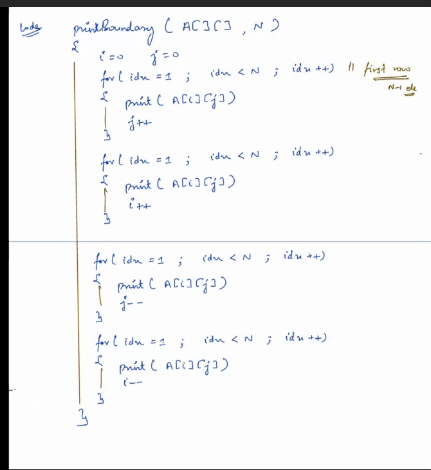 Code printBoundary ( A[][] , N )
{
i=0 j=0
for( idx = 1 ; idx < N ; idx ++) // first row
N-1 ele
{ print ( A[i][j])
j++
}
for( idx = 1 ; idx < N ; idx ++)
{ print ( A[i][j])
i++
}
for( idx = 1 ; idx < N ; idx ++)
{ print ( A[i][j])
j--
}
for( idx = 1 ; idx < N ; idx ++)
{ print ( A[i][j])
i--
}
}